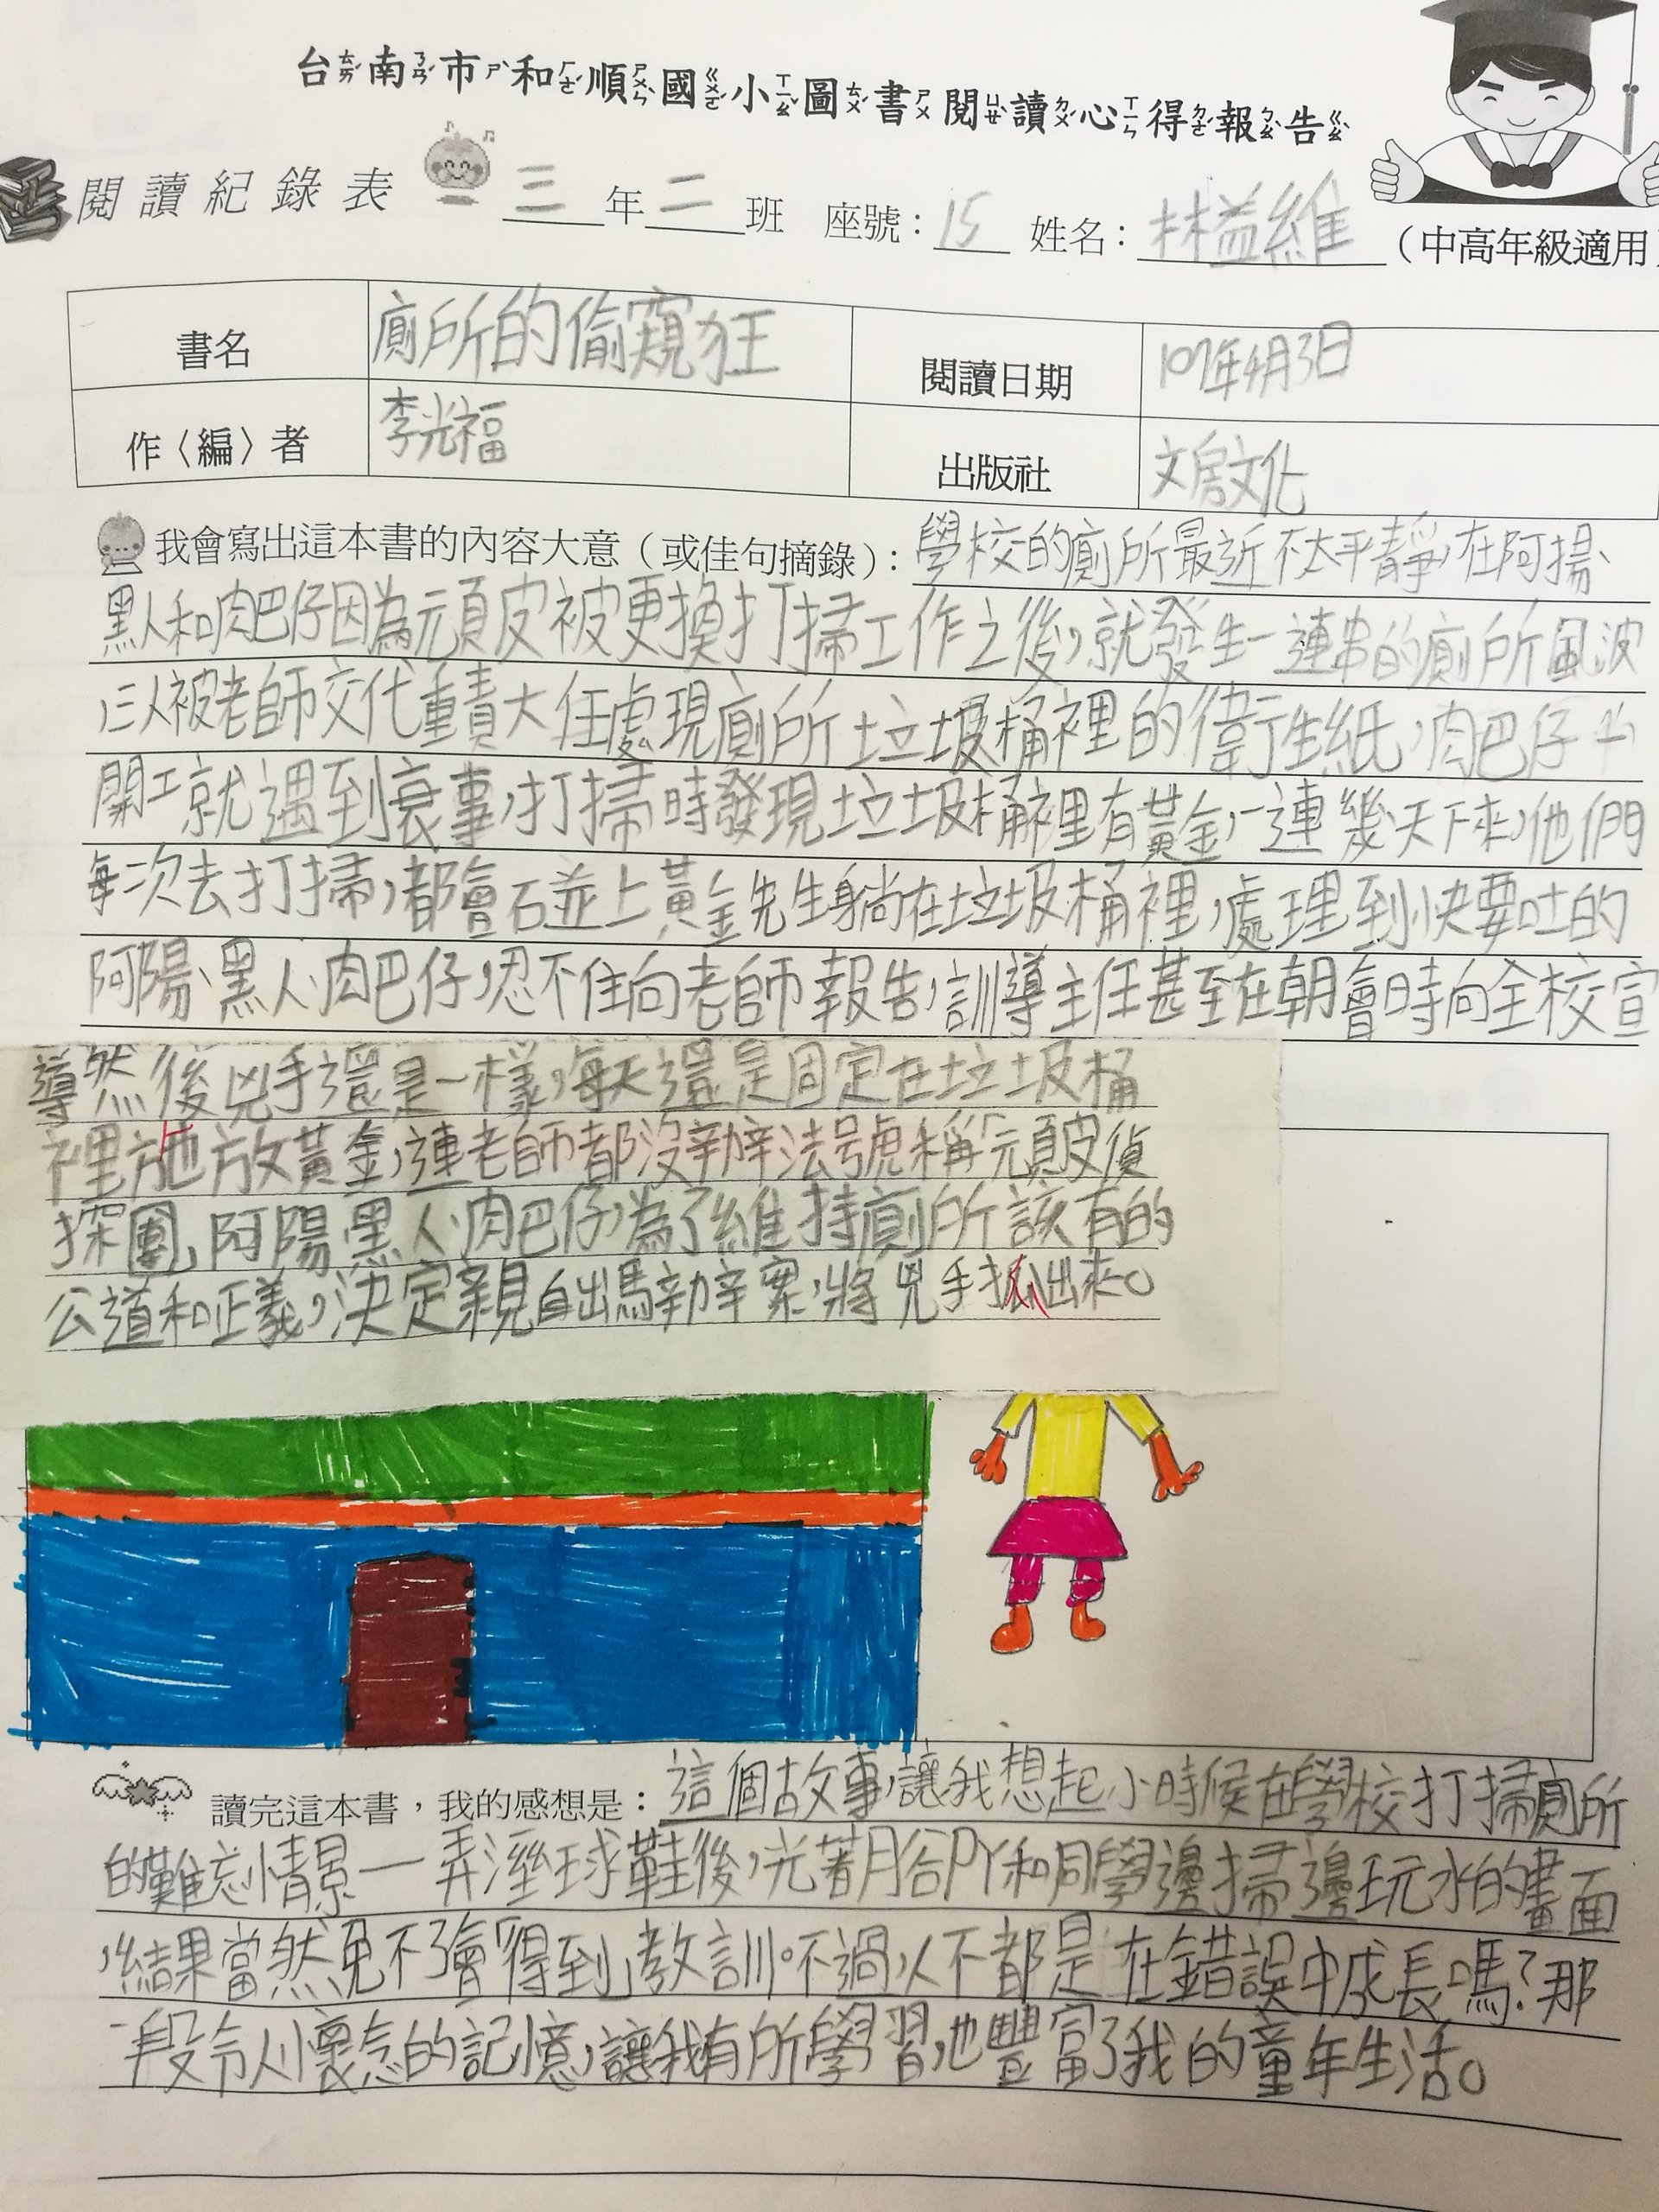 台南市和順國小圖書閱讀心得報告
閱讀紀錄表 三年二班 座號：15 姓名：林益維（中高年級適用）
書名 廁所的偷窺狂 閱讀日期 107年4月3日
作〈編〉者 李光福 出版社 文房文化
我會寫出這本書的內容大意（或佳句摘錄）：學校的廁所最近不太平靜，在阿揚、
黑人和肉巴仔因為頑皮被更換打掃工作之後，就發生一連串的廁所風波
三人被老師交代重責大任處現廁所垃圾桶裡的衛生紙，肉巴仔
開工就遇到衰事，打掃時發現垃圾桶裡有黃金，一連幾天下來，他們
每次去打掃，都會碰上黃金先生躺在垃圾桶裡，處理到快要吐的
阿陽、黑人、肉巴仔，忍不住向老師報告，訓導主任甚至在朝會時向全校宣
導然後兇手還是一樣，每天還是固定在垃圾桶
裡施放黃金，連老師都沒辦法號稱「頑皮偵
探團」阿陽、黑人、肉巴仔，為了維持廁所該有的
公道和正義，決定親自出馬辦案，將兇手抓出來。
讀完這本書，我的感想是：這個故事，讓我想起小時候在學校打掃廁所
的難忘情景—弄溼球鞋後，光著腳ㄚ和同學邊掃邊玩水的畫面
，結果當然免不了會「得到」教訓。不過，人不都是在錯誤中成長嗎？那
一段令人懷念的記憶，讓我有所學習，也豐富了我的童年生活。